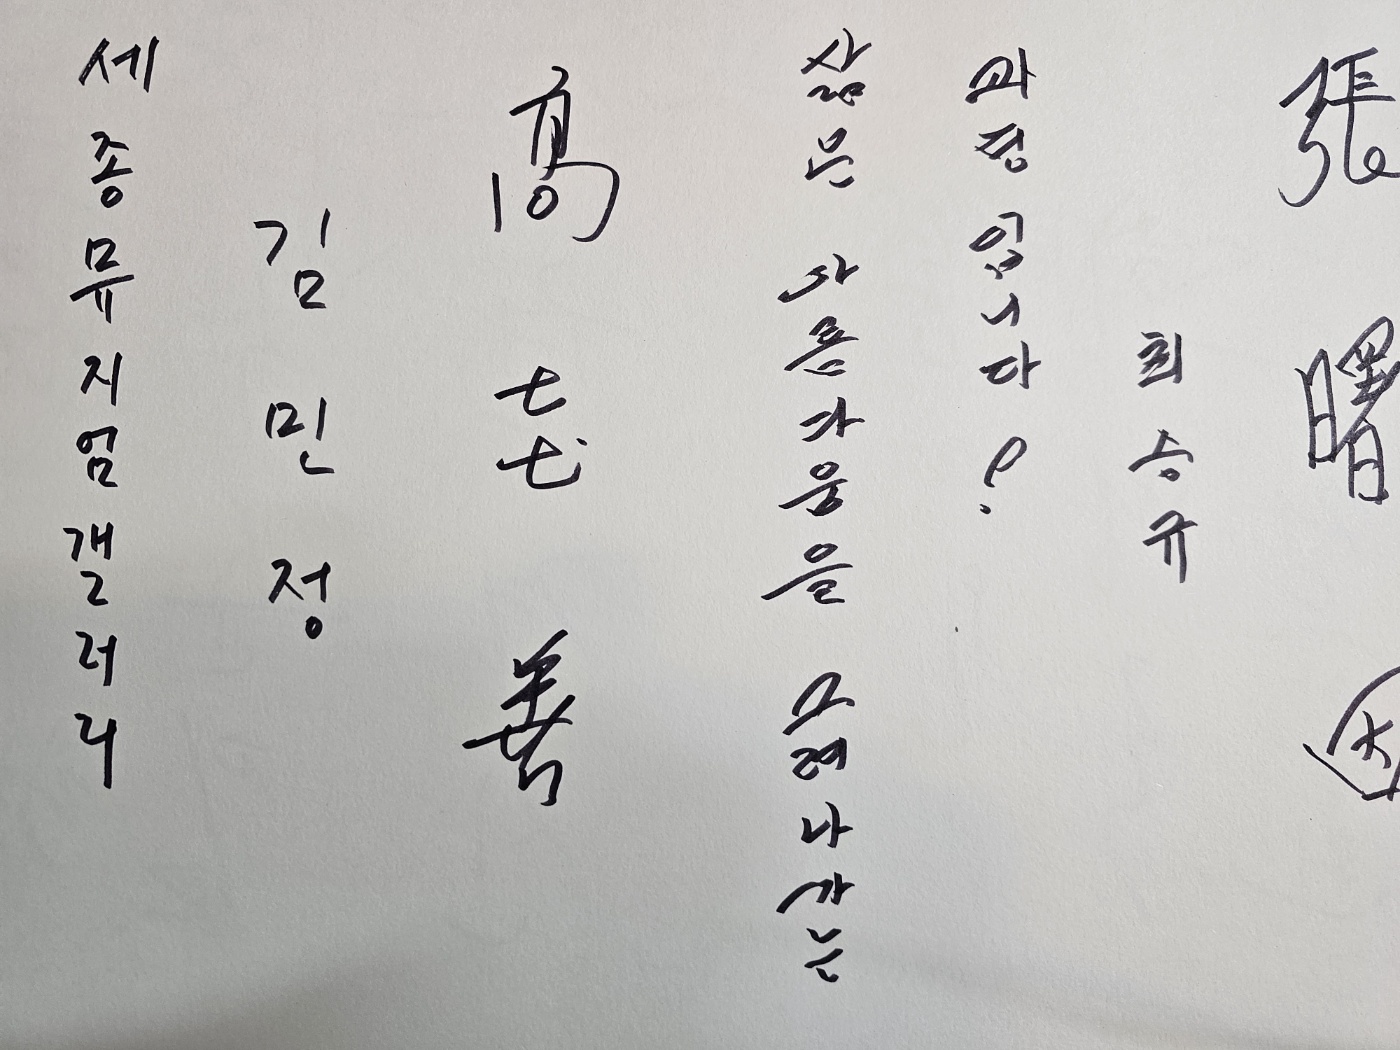 세종뮤지엄갤러리
김민정
高 善
삶은 아름다움을 그려나가는
과정입니다?
최승규
張曙